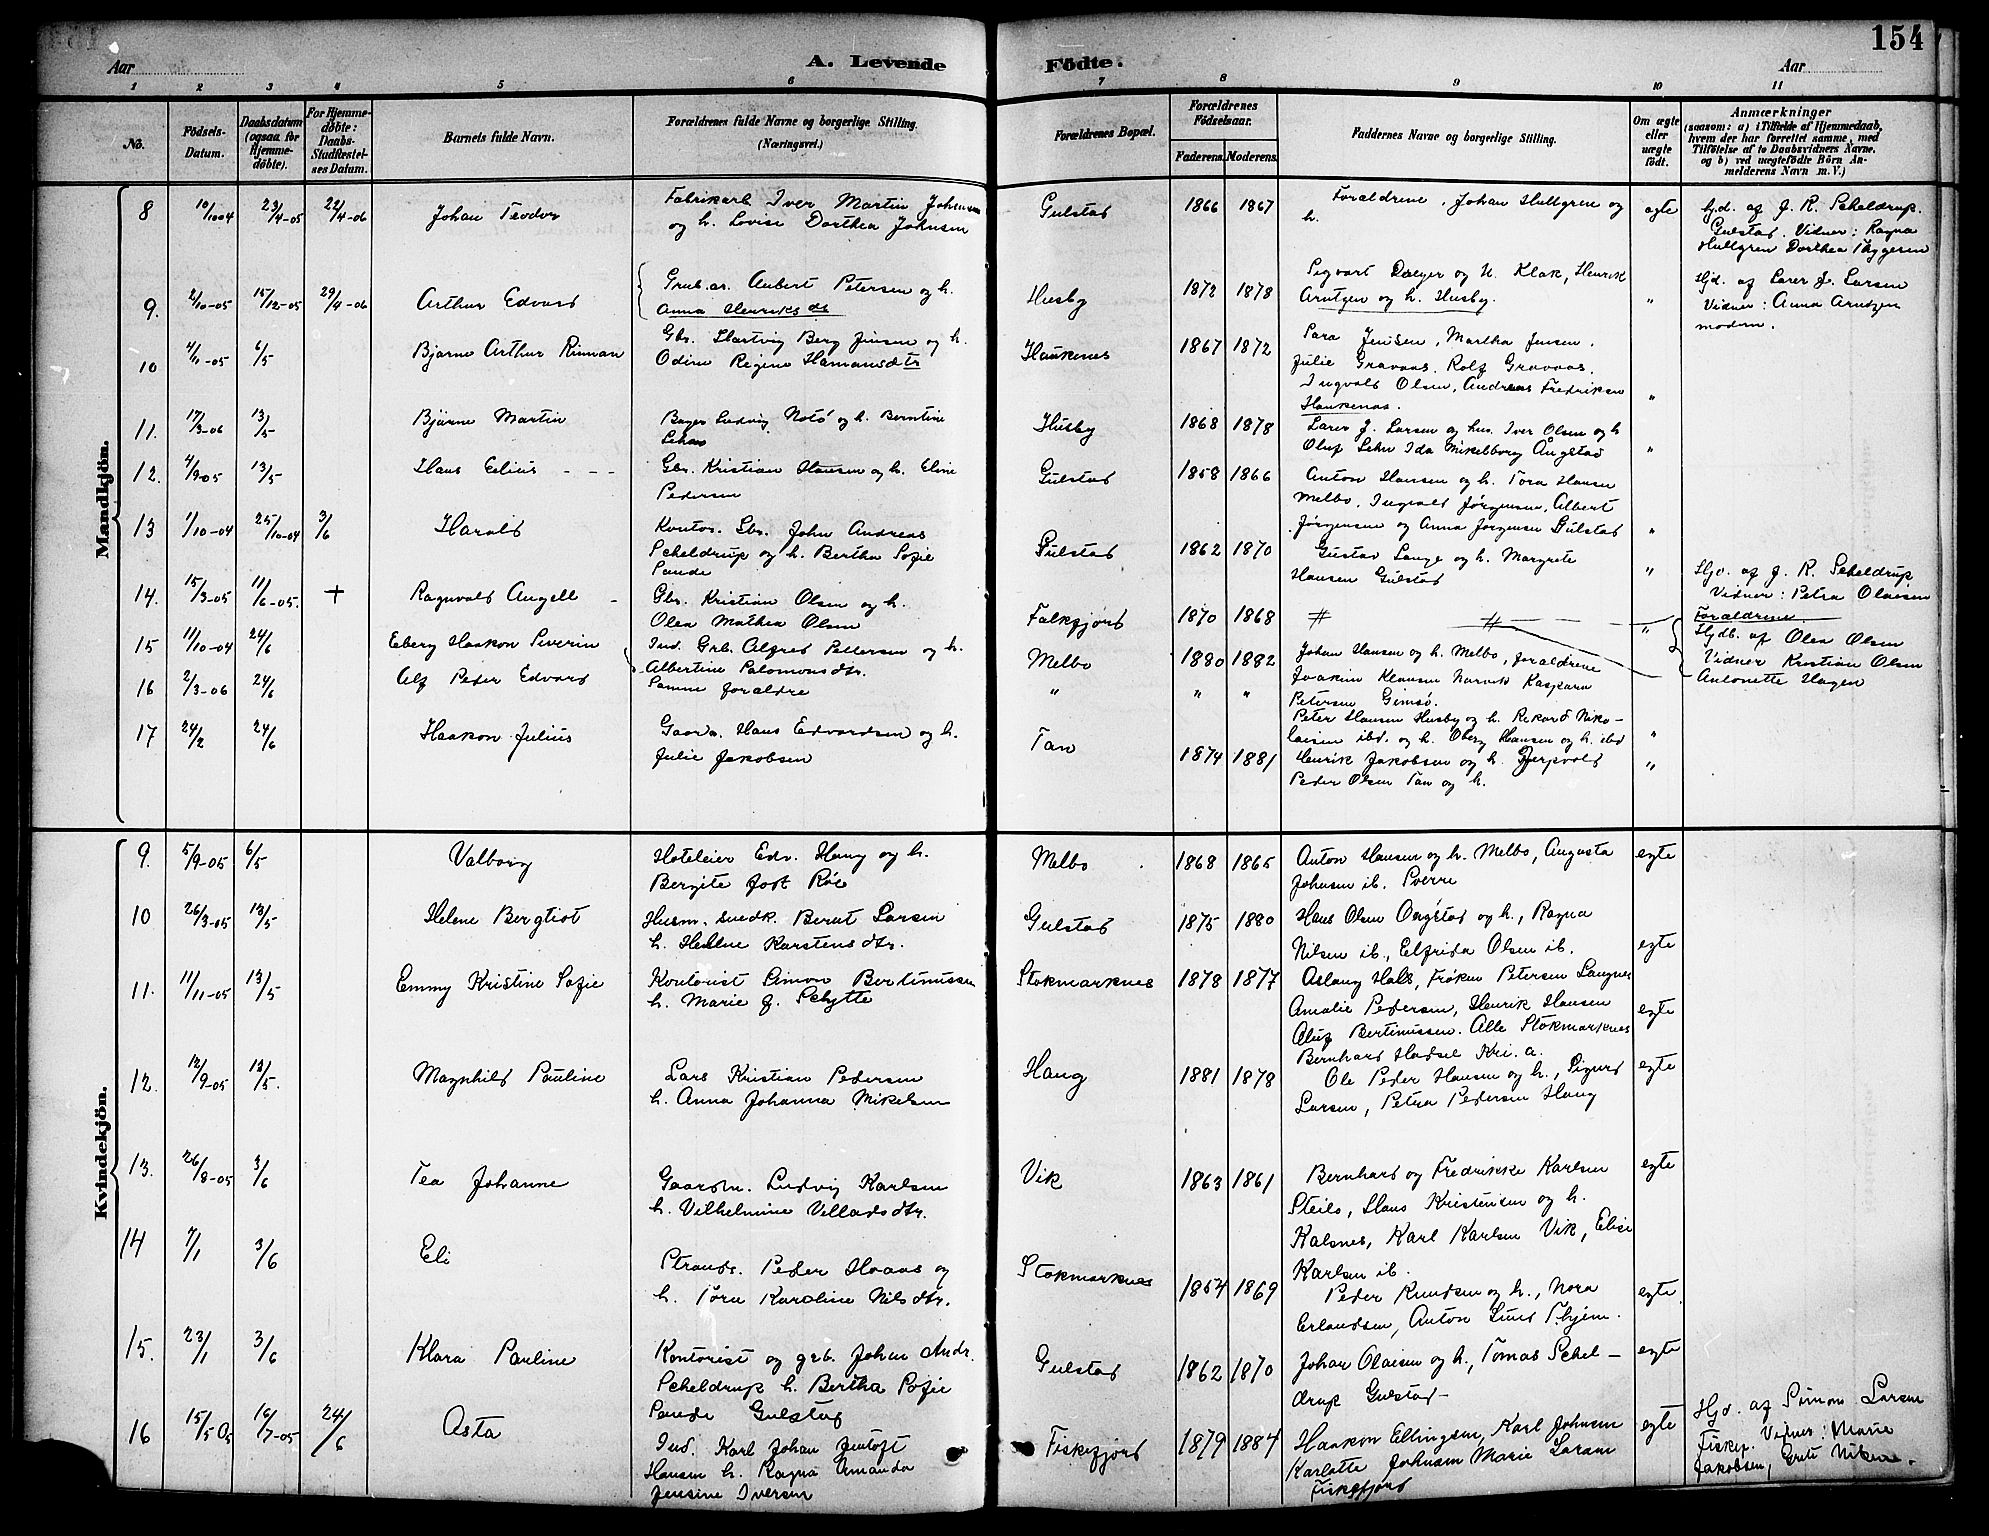 154
Aar
A. Levende
Födte.
Aar
1 2 3 4 5 6 7 8 9 10 11
No.
Födsels-
Datum.
Daabsdatum
(ogsaa for
Hjemme-
döbte).
For Hjemme-
döbte:
Daabs-
Stadfæstel-
ses Datum.
Barnets fulde Navn.
Forældrenes fulde Navne og borgerlige Stilling.
(Næringsvei.)
Forældrenes Bopæl.
Forældrenes
Födselsaar.
Faderens. Moderens.
Faddernes Navne og borgerlige Stilling.
Om ægte
eller
uægte
födt.
Anmærkninger
(saasom: a) i Tilfælde af Hjemmedaab,
hvem der har forrettet samme, med
Tilföielse af to Daabsvidners Navne.
og b) ved uægtefödte Börn An-
melderens Navn m. V.)
Mandkjön.
8 10/10 04 23/4-05 22/4-06 Johan Teodor
Fabrikarb Iver Martin Johnsen
og h. Lovise Dorthea Johnsen
Gulstad 1866 1867
Foraldrene, Johan Hullgren og
h.
egte
Hjd. af J. R. Scheldrup.
Gulstad. Vidner: Ragna
Hullgren Dorthea Thygesen
9. 2/10-05 15/12-05 29/4-06 Arthur Edvard
Grub.ar. Aubert Petersen og h.
Anna Henriksdt
Husby 1872 1878
Sigvart Dreyer og H. Klak, Henrik
Arntzen og h. Husby.
"
Hjd. af Lærer J. Larsen
Vidner: Anna Arntzen
modern.
10 4/11-05 6/5 Bjarne Arthur Rinman
Gbr. Hartvig Berg Jensen og h.
Odine Regine Hamansdtr
Haukenes 1867 1872
Sara Jensen, Martha Jensen.
Julie Gravaas. Rolf Gravaas.
Ingvald Olsen, Andreas Fredriksen
Haukenes.
"
11. 17/3-06 13/5 Bjarne Martin
Bager Ludvig Notö og h. Berntine
Husby 1868 1878
Lærer J. Larsen og hus. Iver Olsen og h
Oluf Lehn Ida Mikelborg Angstad
"
12. 4/9 05 13/5 Hans Edius - - -
Gbr. Kristian Hansen og h. Eline
Pedersen
Gulstad 1858 1866
Anton Hansen og h. Tora Hansen
Melbo, Ingvald Jörgensen, Albert
Jörgensen og Anna Jorgensen Gulstad
"
13 1/10-04 25/10-04 3/6 Harald
Kontor. Gbr. John Andreas
Scheldrup og h. Bertha Sofie
Sande
Gulstad 1862 1870
Gustav Lange og h. Margrete
Hansen Gulstad
"
Hjd. af J. R. Scheldrup
Vidner: Petra Olaisen
14. 15/3-05 11/6-05. + Ragnvald Angell -
Gbr. Kristian Olsen og h.
Olea Mathea Olsen
Falkfjord 1870 1868
"
Foraldrene
Hjdb. af Olea Olsen
Vidner Kristian Olsen
Antonette Hagen
15 11/10-04 24/6 Eberg Haakon Severin
Ind. Grb. Alfred Pettersen og h.
Albertine Salomonsdtr.
Melbo 1880 1882
Johan Hansen og h. Melbo, foraldrene
Joakim Klausen Narvik Kaspara
Petersen Gimsö.
16 2/3-06 24/6 Alf Peder Edvard
Samme foraldre
" " "
Peter Hansen Husby og h. Rikard Niko-
laisen ibd. og h. Oberg Hansen og h. ibd
"
17 24/2 24/6 Haakon Julius
Gaard. Hans Edvardsen og h.
Julie Jakobsen
Tan 1874 1881
Henrik Jakobsen og h.
Peder Olsen Tan og h.
"
Kvindekjön.
9. 5/9-05 6/5 Valborg
Hoteleier Edv. Haug og h.
Bergite födt Röe
Melbo 1868 1865
Anton Hansen og h. Melbo, Augusta
Johnsen ib. Sverre
egte
10 26/3-05 13/5 Helene Bergliot
Husm. snedk. Bernt Larsen
h. Helene Karstensdtr.
Gulstad 1875 1880
Hans Olsen Angstad og h., Ragna
Nilsen ib., Elfrida Olsen ib.
egte
11. 11/11-05 13/5 Emmy Kristine Sofie
Kontorist Simon Bertinussen
h. Marie f. Schytte
Stokmarknes 1878 1877
Aslaug Hals, Fröken Petersen Langnes
Amalie Pedersen, Henrik Hansen
Oluf Bertinussen. Alle Stokmarknes
Bernhard Hadsel Kri.a.
egte
12. 12/9-05 13/5. Magnhild Pauline
Lars Kristian Pedersen
h. Anna Johanna Mikelsen
Haug 1881 1878
Ole Peder Hansen og h., Sigurd
Larsen, Petra Pedersen Haug
egte
13. 26/8-05 3/6 Tea Johanne
Gaardm. Ludvig Karlsen
h. Vilhelmine Velladsdtr.
Vik 1863 1861
Bernhard og Fredrikke Karlsen
Steilo, Hans Kristensen og h.
Kalsnes, Karl Karlsen Vik, Elise
Karlsen ib.
egte
14 7/1 3/6 Eli
Strands. Peder Hoaas og
h. Tora Karoline Nilsdtr.
Stokmarknes 1864 1869
Peder Knudsen og h., Nora
Erlandsen, Anton Lund Trhjem.
egte
15. 23/1 3/6 Klara Pauline
Kontorist og grb. Johan Andr.
Scheldrup h. Bertha Sofie
Sande Gulstad
Gulstad 1862 1870
Johan Olaisen og h., Tomas Schel-
drup Gulstad-
egte
16 15/5 05 16/7-05 24/6 Asta
Ind. Karl Johan Jentoft
Hansen h. Ragna Amanda
Jensine Iversen
Fiskefjord 1879 1884
Haakon Ellingsen, Karl Johnsen
Karlotte Johnsen Marie Larsen
Fiskefjord
egte
Hjd. af Simon Larsen
Fiskef. Vidner: Marie
Jakobsen, Nilsen.